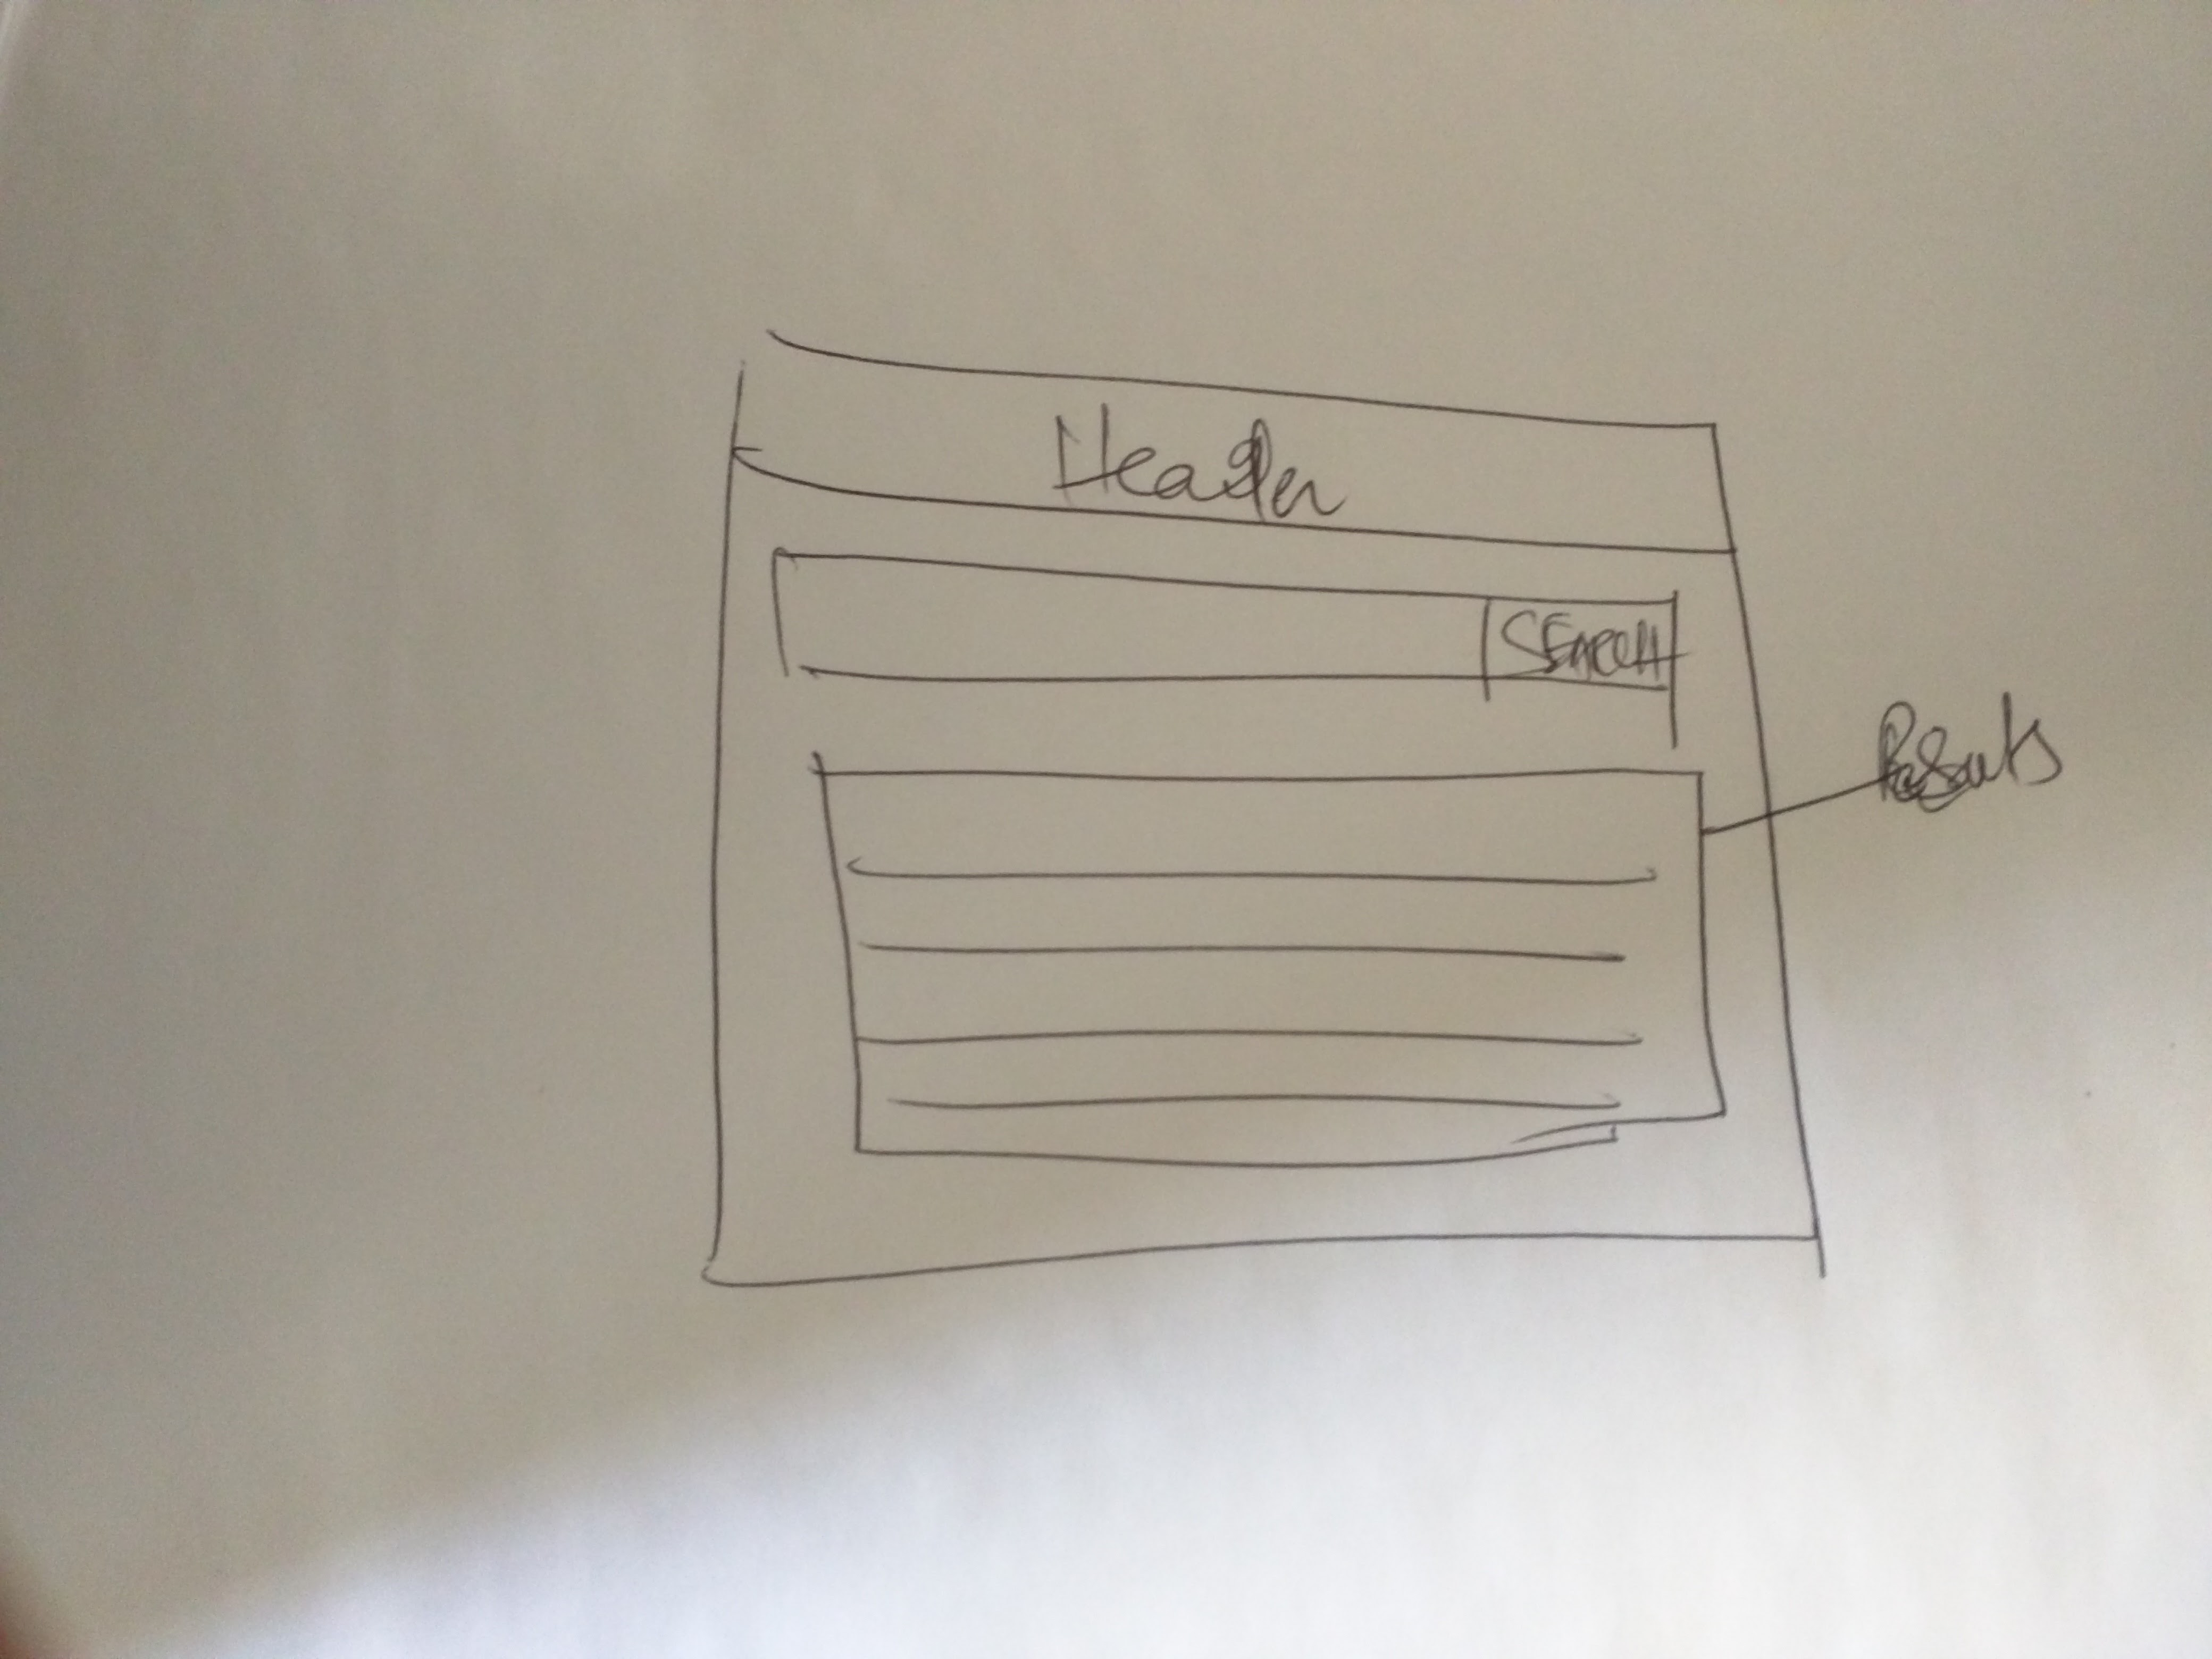 Header
SEARCH
Results